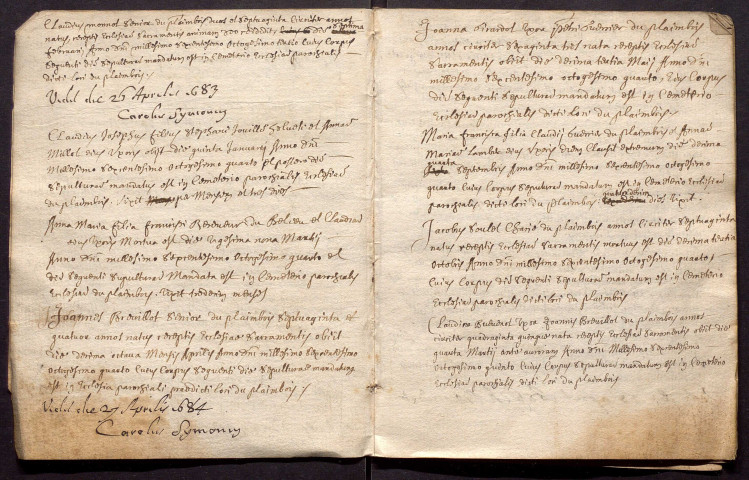 Claudius monnot senior du plaimbois annos septuaginta circiter
natus receptis Ecclesiae sacramentis animam deo reddidit die decima
februarii Anno dni millesimo sexcentesimo octogesimo tertio cuius Corpus
sequenti die sepulturae mandatum est in Cemeterio Ecclesiae parochialis
dicti loci du plaimbois
Vidi die 26 Aprilis 1683
Carolus Symonin
Claudius Josephus filius Stephani et Annae
Millot eius Uxoris obiit die quinta Januarij Anno dni
Millesimo sexcentesimo octogesimo quarto et die
sepulturae mandatus est in Cemeterio parochialis Ecclesiae
du plaimbois. Vixit Menses et tres dies
Anna Maria filia Francisci du Belieu et Claudiae
eius Uxoris Mortua est die vigesima nona Martij
Anno dni millesimo sexcentesimo octogesimo quarto et
die sequenti sepulturae Mandata est in Cemeterio parochialis
Ecclesiae du plaimbois. Vixit tredecim menses
Joannes Brevillot senior du plaimbois septuaginta et
quatuor annos natus receptis Ecclesiae sacramentis obiit
die decima octava Mensis Aprilis Anno dni millesimo sexcentesimo
octogesimo quarto cuius Corpus sequenti die sepulturae mandatum
est in Ecclesia parochiali praedicti loci du plaimbois
Vidi die 27 Aprilis 1684
Carolus Symonin
Joanna Uxor petri Cuenier du plaimbois
annos circiter septuaginta tres nata receptis Ecclesiae
Sacramentis obiit die decima tertia Maij Anno dni
millesimo sexcentesimo octogesimo quarto, Eius Corpus
die sequenti sepulturae mandatum est in Cemeterio
Ecclesiae parochialis dicti loci du plaimbois
Maria francisca filia Claudij Cuenier du plaimbois et Annae
Mariae eius Uxoris diem clausit extremum die decima
quarta septembris Anno dni millesimo sexcentesimo octogesimo
quarto Cuius Corpus sepulturae mandatum est in Cemeterio Ecclesiae
parochialis dicti loci du plaimbois. quatuordecim dies Vixit
Jacobus du plaimbois annos Circiter septuaginta
natus receptis Ecclesiae sacramentis mortuus est die decima tertia
octobris Anno dni millesimo sexcentesimo octogesimo quarto
Cuius Corpus die sequenti sepulturae mandatum est in Cemeterio
Ecclesiae parochialis dicti loci du plaimbois
Claudina Uxor Joannis Brevillot du plaimbois annos
circiter quadraginta quinque nata receptis Ecclesiae sacramentis obiit die
quarta Martij ante auroram Anno dni Millesimo sexcentesimo
octogesimo quinto Cuius Corpus sepulturae mandatum est in Cemeterio
Ecclesiae parochialis dicti loci du plaimbois